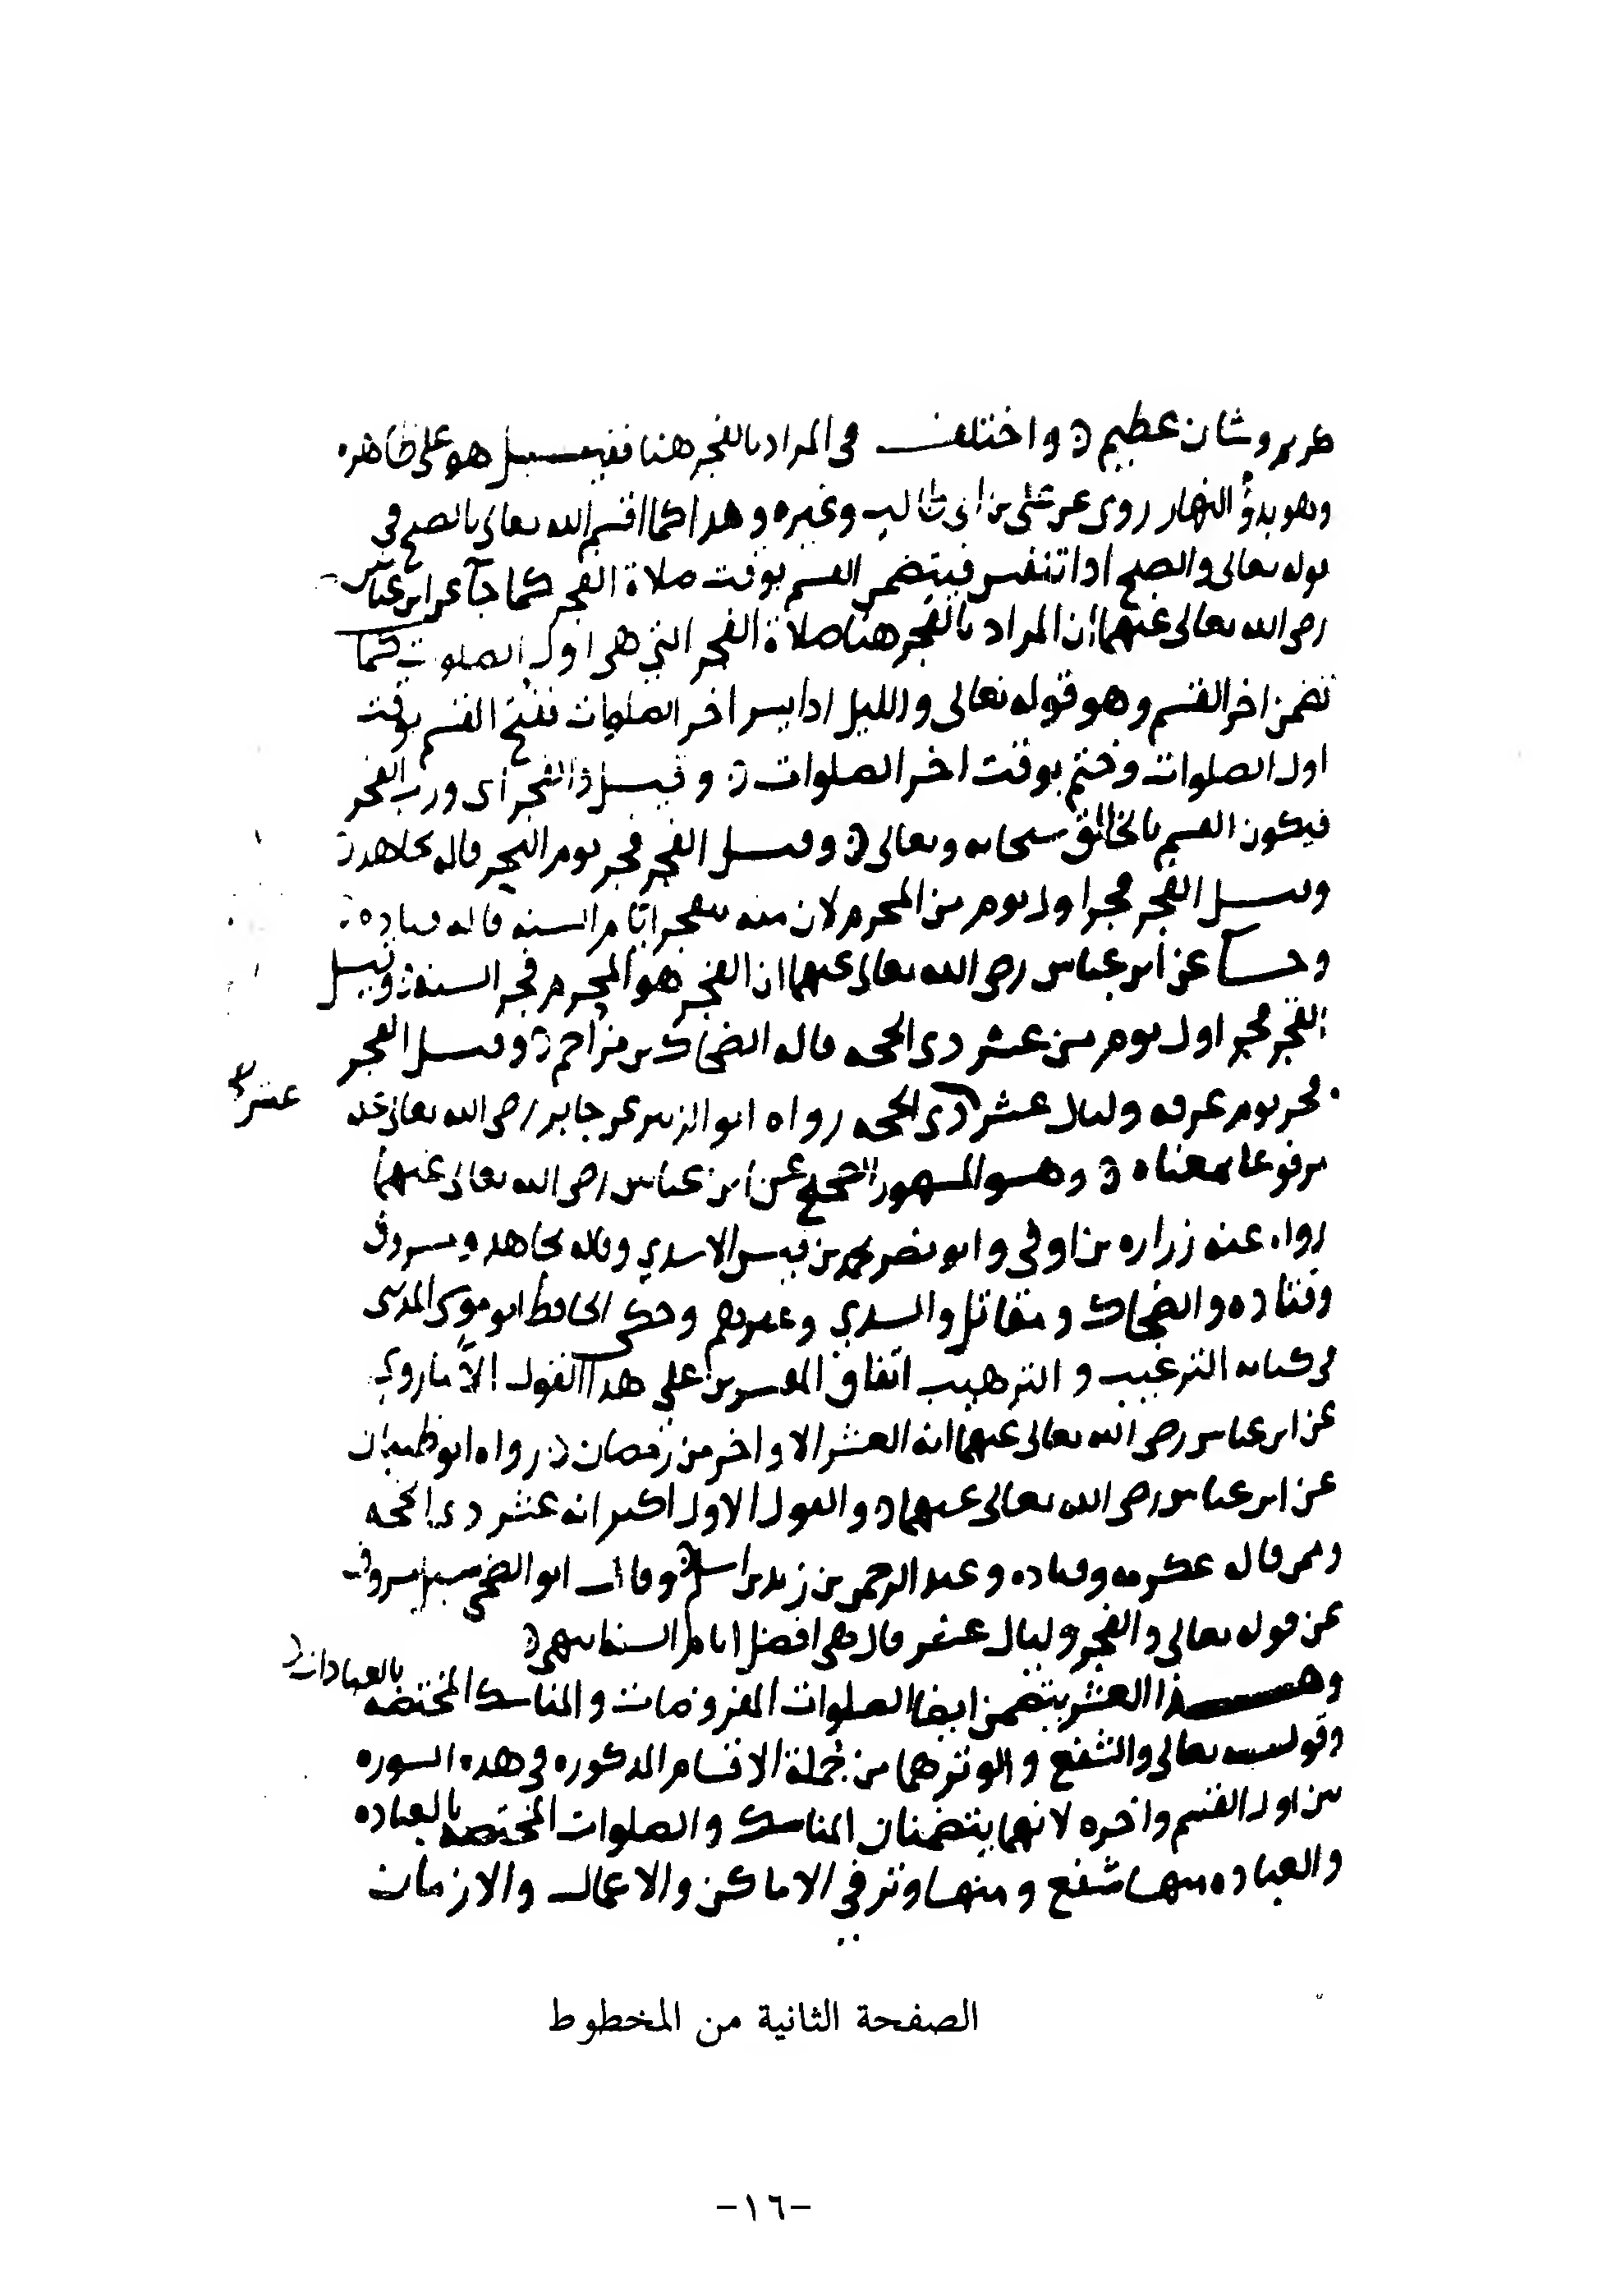 كريم وشان عظيم ٥ واختلف في المراد بالفجر هنا فقيل هو على ظاهره
وهو بدؤ النهار روى عن على بن ابي طالب وغيره وهدا كما اقسم الله تعالى بالصبح في
قوله تعالى والصبح ادا تنفس فيتضمن القسم بوقت صلاة الفجر كما جآ عن ابن عباس
رضى الله تعالى عنهما ان المراد بالفجر هنا صلاة الفجر التي هى اول الصلوات كما
تضمن اخر القسم وهو قوله تعالى والليل ادا يسر اخر الصلوات ففتح القسم بوقت
اول الصلوات وختم بوقت اخر الصلوات ٥ وقيل والفجر اى ورب الفجر
فيكون القسم بالخالق سبحانه وتعالى ٥ وقيل الفجر فجر يوم النحر قاله مجاهد ٥
وقيل الفجر فجر اول يوم من المحرم لان منه تنفجر ايام السنه قاله قتاده ٥
وجآ عن ابن عباس رضى الله تعالى عنهما ان الفجر هو المحرم فجر السنة ٥ وقيل
الفجر فجر اول يوم من عشر دى الحجه قاله الضحاك بن مزاحم ٥ وقيل الفجر
فجر يوم عرفه وليال عشر دى الحجه رواه ابو الزبير عن جابر رضى الله تعالى عنه
عشر
مرفوعا بمعناه ٥ وهو المشهور الصحيح عن ابن عباس رضى الله تعالى عنهما
رواه عنه زراره بن اوفى وابو نصر محمد بن قيس الاسدي وقاله مجاهد ومسروق
وقتاده والضحاك ومقاتل والسدي وغيرهم وحكى الحافظ ابو موسى المدينى
فى كتابه الترغيب والترهيب اتفاق المفسرين على هدا القول الا ما روي
عن ابن عباس رضى الله تعالى عنهما انه العشر الاواخر من رمضان ٥ رواه ابو ظبيان
عن ابن عباس رضى الله تعالى عنهما ٥ والقول الاول اكثر انه عشر دى الحجه
وممن قاله عكرمه وقتاده وعبد الرحمن بن زيد بن اسلم ٥ وقال ابو الضحى سيل مسروق
عن قوله تعالى والفجر وليال عشر قال هى افضل ايام السنه انتهى ٥
وهذا العشر يتضمن ايضا الصلوات المفروضات والمناسك المختصه بالعبادات ٥
وقوله تعالى والشفع والوتر هما من جملة الاقسام المدكوره فى هده السوره
من اول القسم واخره لانهما يتضمنان المناسك والصلوات المختصه بالعباده
والعباده منها شفع ومنها وتر في الاماكن والاعمال والازمان
الصفحة الثانية من المخطوط
-١٦-